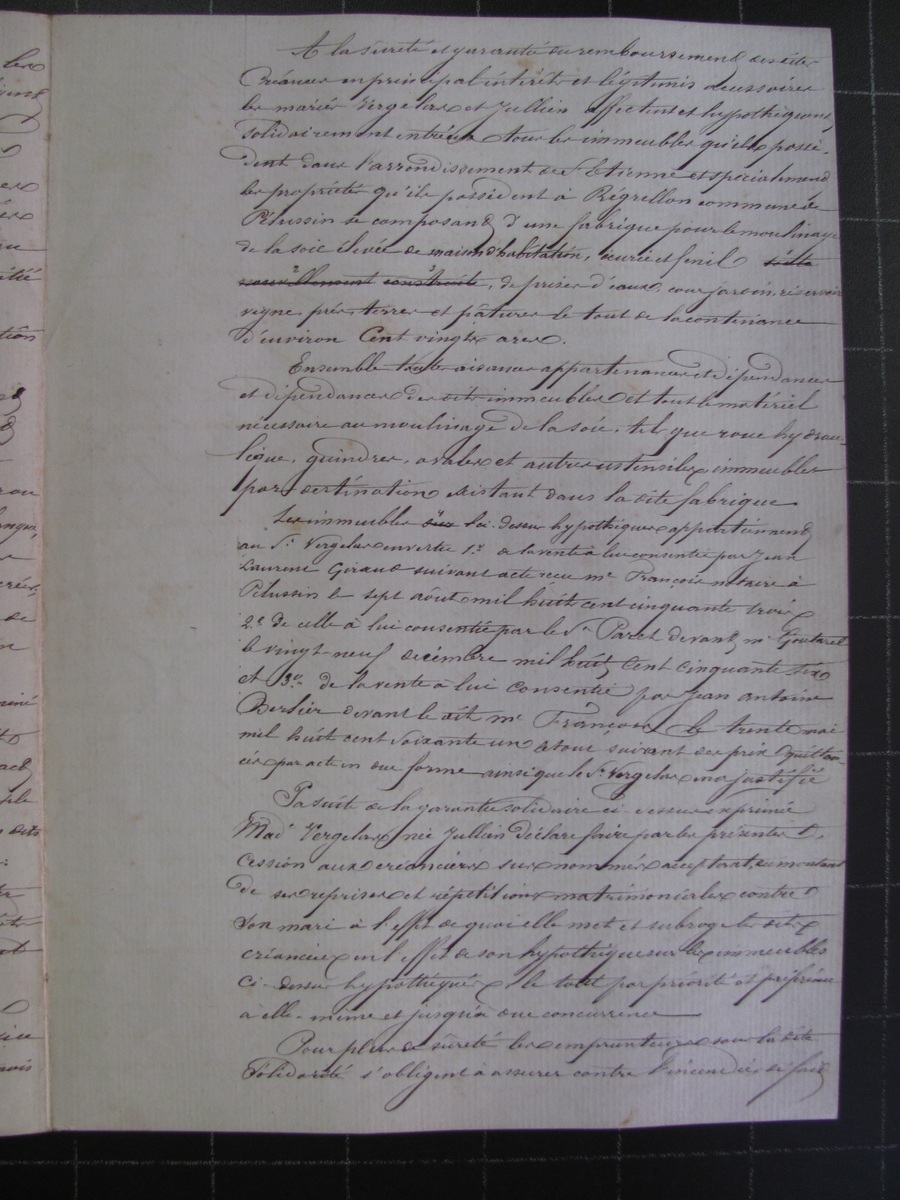 A la sûreté et garantie du remboursement des dites
créances en principal intérêts et légitimes accessoires
les mariés Vergelas et Jullien affectent et hypothèquent
solidairement entr'eux tous les immeubles qu'ils possè-
dent dans l'arrondissement de St Etienne et spécialement
les propriétés qu'ils possèdent à Régrellon commune de
Pélussin se composant d'une fabrique pour le moulinage
de la soie élevée de maison d'habitation, écurie et fenil
nouvellement construite, de prises d'eaux, cour jardin, réservoir
vigne prés terres et pâtures le tout de la contenance
d'environ Cent vingt ares.
Ensemble toutes aisances appartenances et dépendances
et dépendances des dits immeubles et tout le matériel
nécessaire au moulinage de la soie, tel que roue hydrau-
lique, guindres, ovales et autres ustensiles immeubles
par destination existant dans la dite fabrique
Les immeubles ci-dessus hypothéqués appartiennent
au Sr Vergelas en vertu 1o de la vente à lui consentie par Jean
Laurent Giraud suivant acte reçu Me François notaire à
Pélussin le sept août mil huit cent cinquante trois
2o de celle à lui consentie par le Sr Paret devant Me Goutarel
le vingt-neuf décembre mil huit cent cinquante six
et 3o de la vente à lui consentie par Jean Antoine
Berlier devant le dit Me François le trente mai
mil huit cent soixante un tous suivant des prix quittan-
cés par acte en due forme ainsi que le Sr Vergelas en a justifié
Par suite de la garantie solidaire ci dessus exprimée
Made Vergelas née Jullien déclare faire par les présentes
cession aux créanciers sus nommés acceptant, du montant
de ses reprises et répétitions matrimoniales contre
son mari à l'effet de quoi elle met et subroge les dits
créanciers en l'effet de son hypothèque sur les immeubles
ci-dessus hypothéqués le tout par priorité et préférence
à elle-même et jusqu'à due concurrence
Pour plus de sûreté les emprunteurs sous la dite
solidarité s'obligent à assurer contre l'incendie, si fait